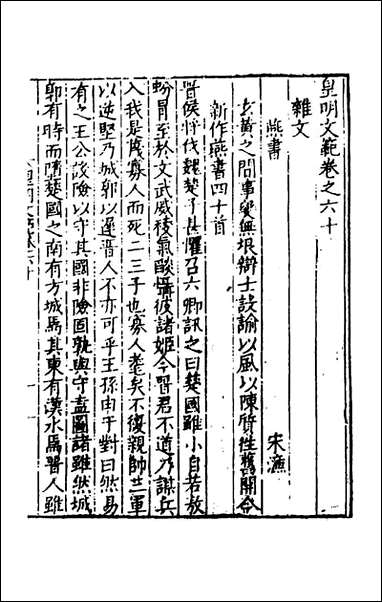 皇明文範卷之六十
雜文
燕書 宋濂
玄黃之問事變無垠辯士設論以風以陳質往舊開今
新作燕書四十首
晉侯將伐魏楚子甚懼召六卿訊之曰楚國雖小自若敖
蚡冒至於文武威稜氣酸懾彼諸姬今晉君不道乃謀兵
入我是虞寡人而死二三子也寡人耄矣不復親帥三軍
以逆堅乃城郭以遏晉人不亦可乎王孫由于對曰然易
有之王公設險以守其國非險固孰與守盍圖諸雖然城
郭有時而隳楚國之南有方城焉其東有漢水焉晉人雖